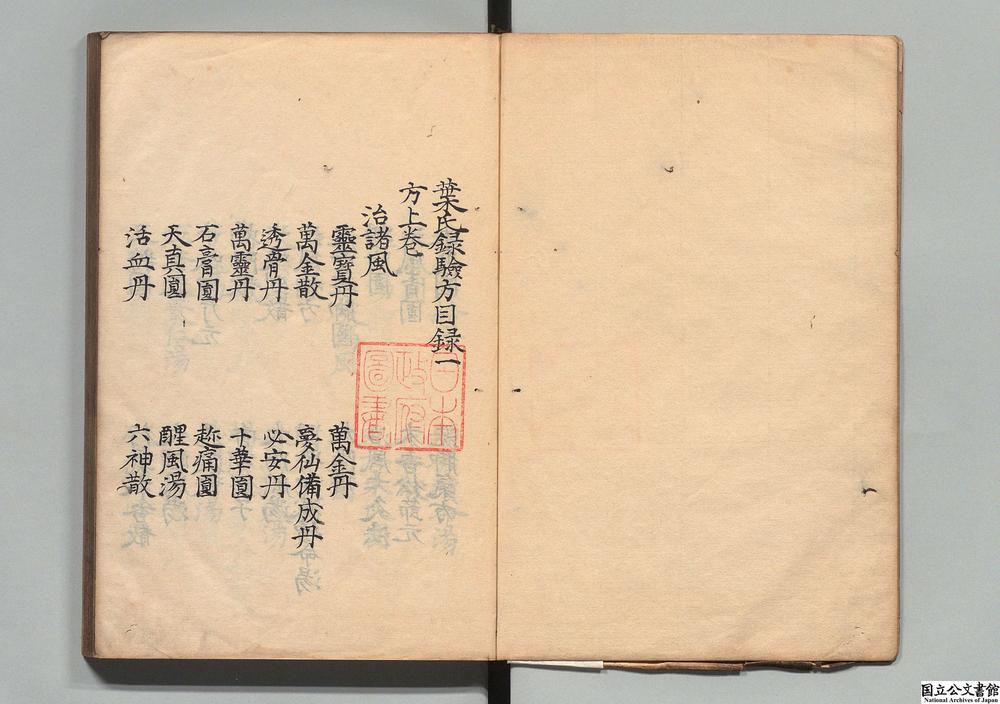 葉氏録驗方目録一
方上卷
治諸風
靈寶丹
萬金丹
萬金散
夢仙備成丹
透骨丹
必安丹
萬靈丹
十華圓
石膏圓
趂痛圓
天真圓
醒風湯
活血丹
六神散
日本
政府
圖書
国立公文書館
National Archives of Japan